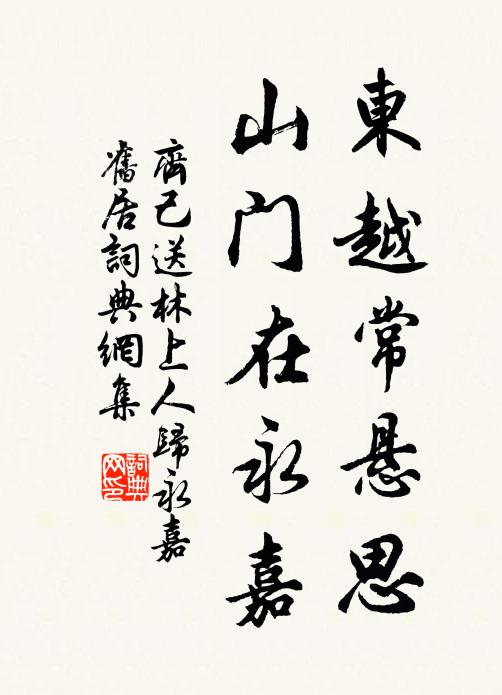 東越常懸思
山門在永嘉
齊己送林上人歸永嘉
舊居詞典網集
詞典
网印